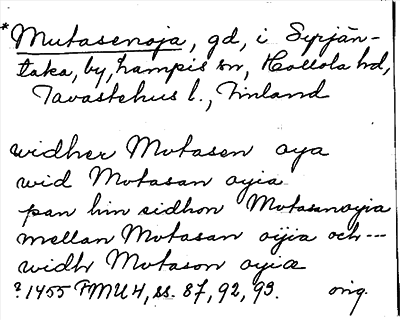 *Mutasenoja, gd, i Syrjän-
taka, by, Lampis sn, Hollola hd,
Tavastehus l., Finland
widher Motasen oya
wid Motasan oyia
pan hin sidhon Motasanoyia
mellan Motasan oÿia och---
widh Motason oyiæ
? 1455 FMU 4, ss. 87, 92, 93. orig.